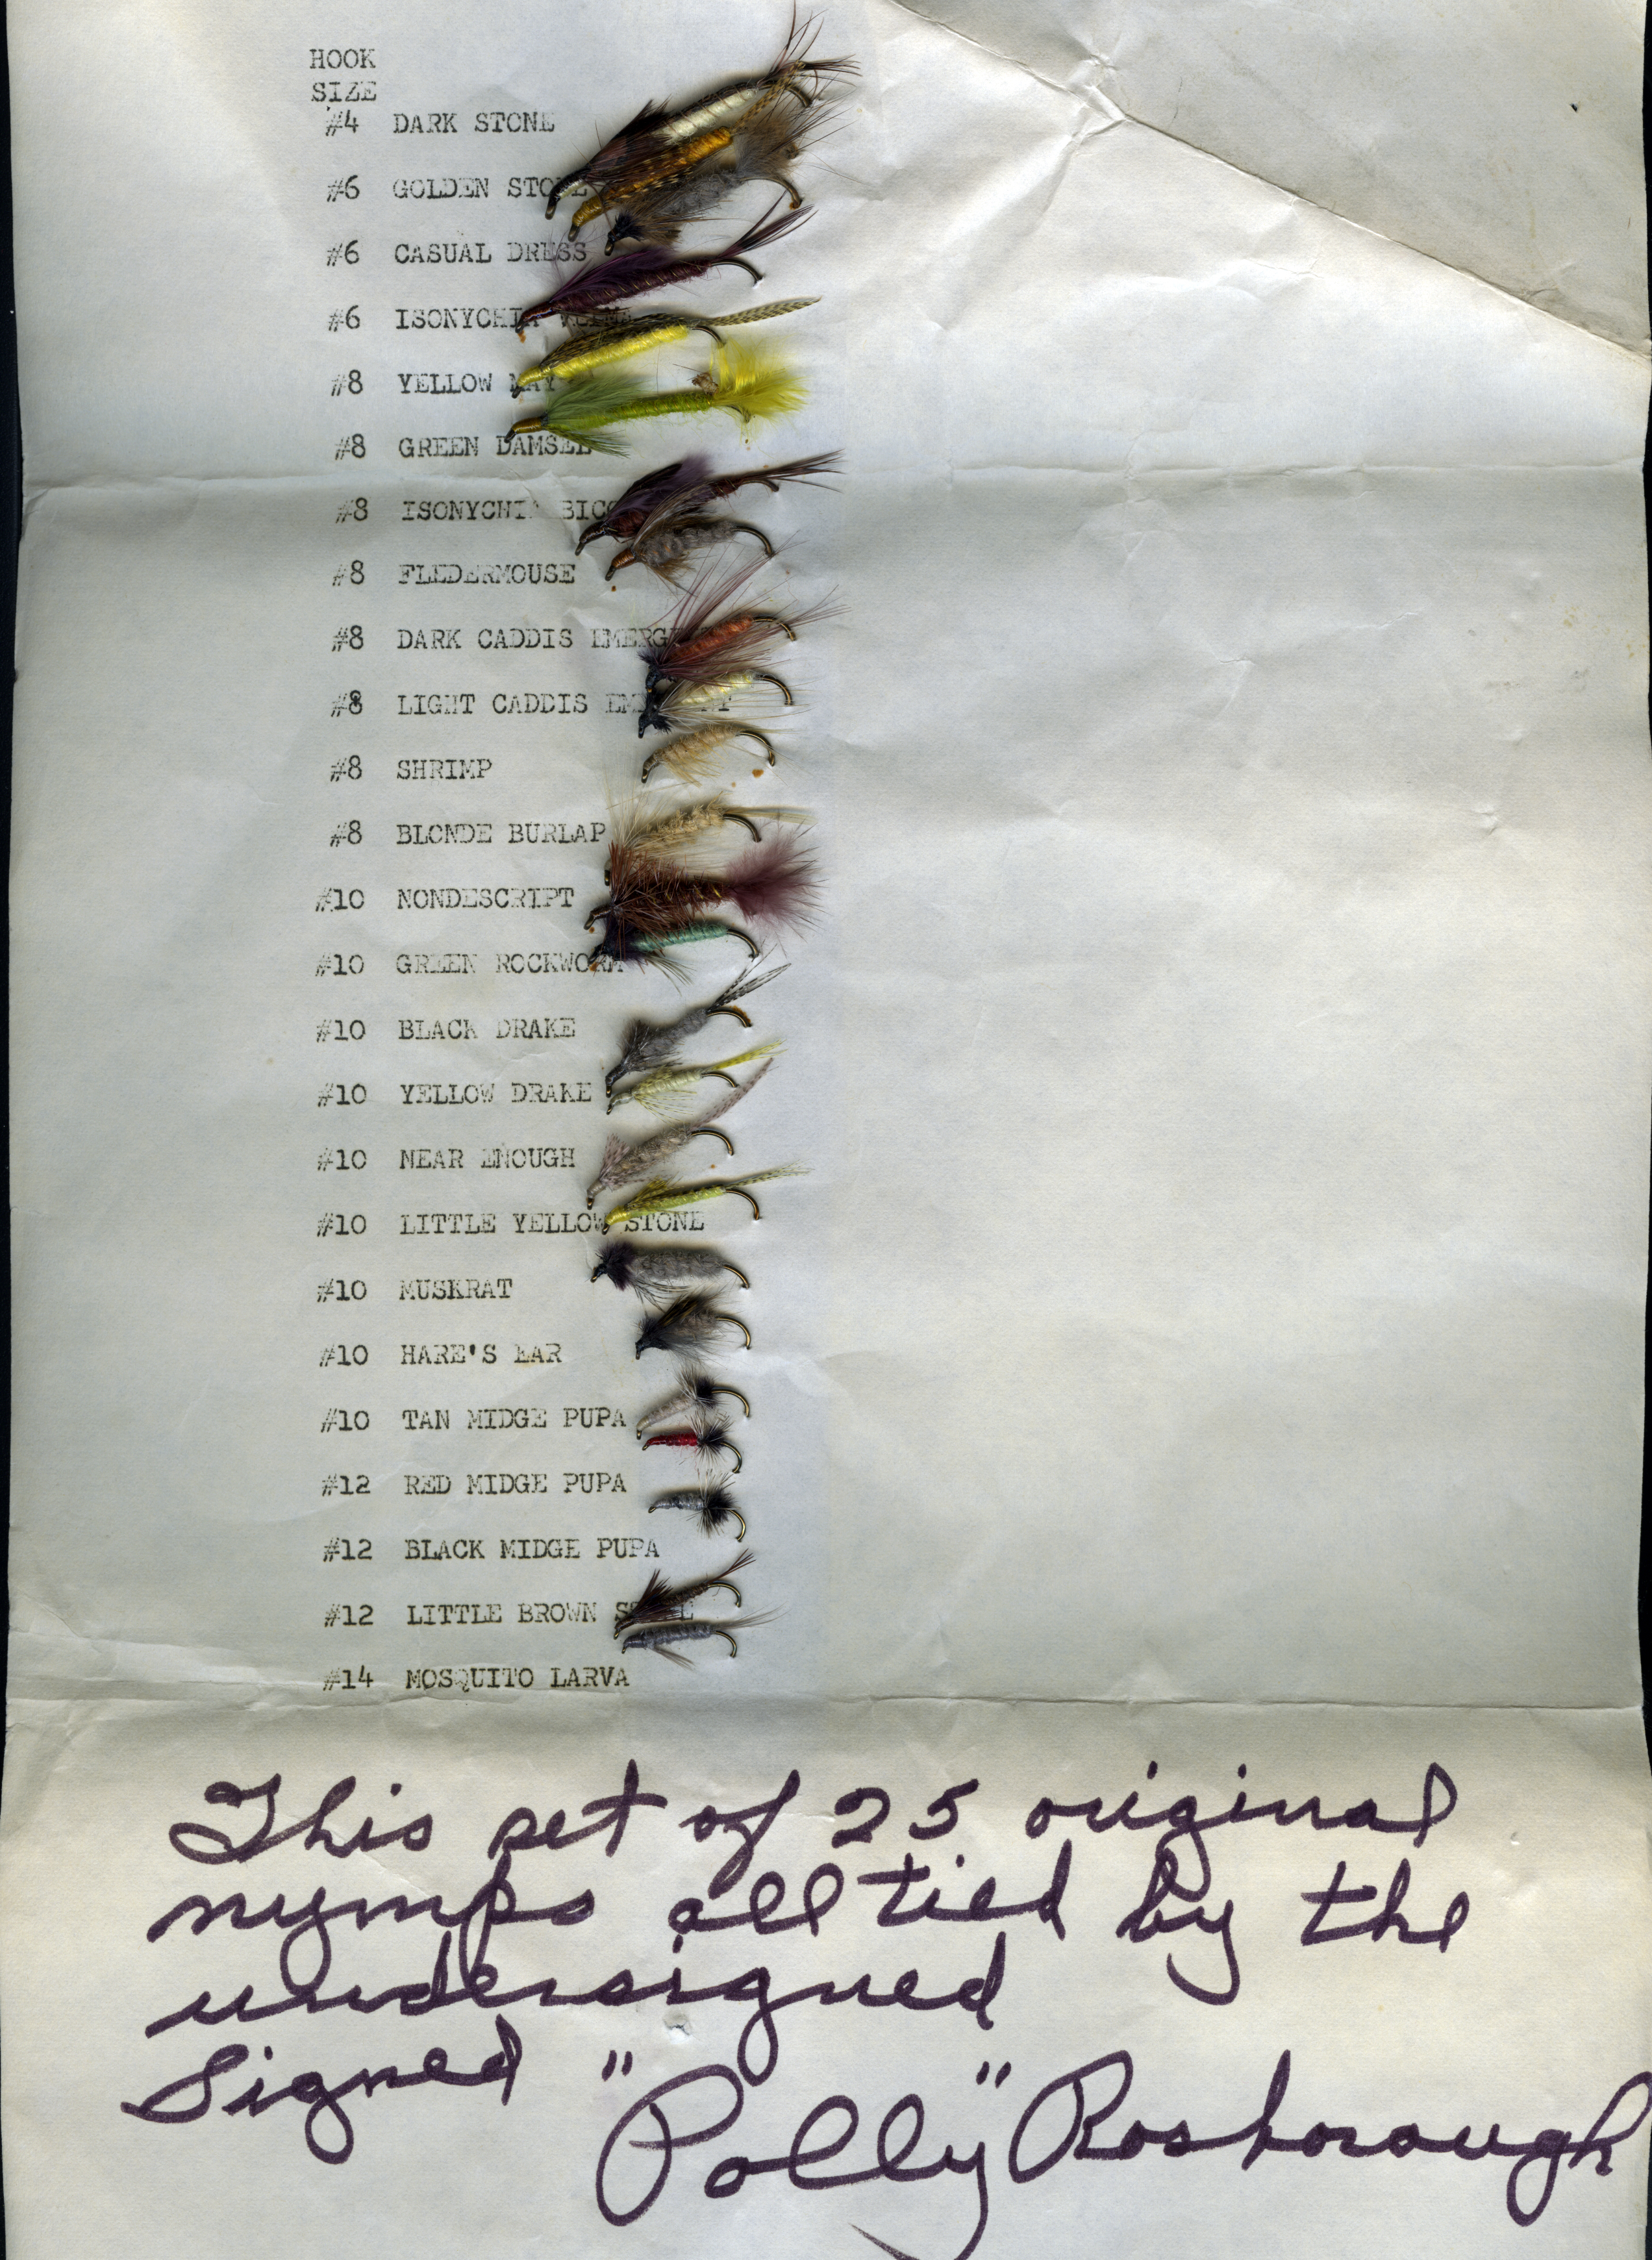 HOOK
SIZE
#4 DARK STONE
#6 GOLDEN STONE
#6 CASUAL DRESS
#6 ISONYCHIA
#8 YELLOW MAY
#8 GREEN DAMSEL
#8 ISONYCHIA BICO
#8 FLEDERMOUSE
#8 DARK CADDIS EMERG
#8 LIGHT CADDIS
#8 SHRIMP
#8 BLONDE BURLAP
#10 NONDESCRIPT
#10 GREEN ROCKWORM
#10 BLACK DRAKE
#10 YELLOW DRAKE
#10 NEAR ENOUGH
#10 LITTLE YELLOW STONE
#10 MUSKRAT
#10 HARE'S EAR
#10 TAN MIDGE PUPA
#12 RED MIDGE PUPA
#12 BLACK MIDGE PUPA
#12 LITTLE BROWN STONE
#14 MOSQUITO LARVA
This set of 25 original
nymps all tied by the
undersigned
Signed "Polly" Rosborough